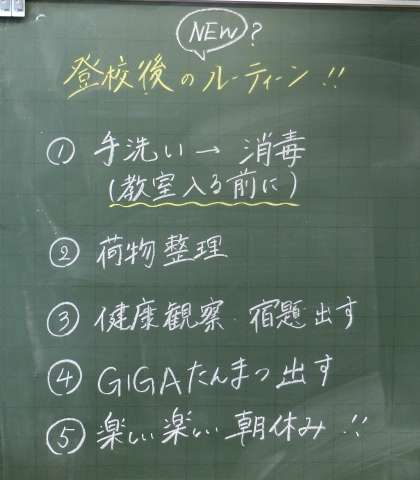 NEW?
登校後のルーティーン!!
① 手洗い→消毒
(教室入る前に)
② 荷物整理
③ 健康観察・宿題出す
④ GIGAたんまつ出す
⑤ 楽しい楽しい朝休み!!